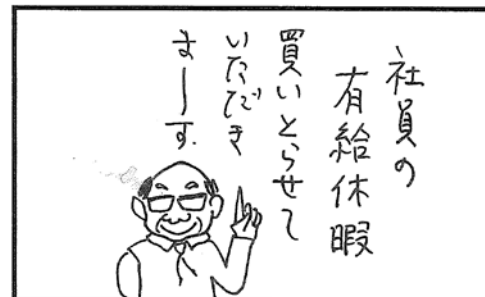 社員の
有給休暇
買いとらせて
いただき
まーす.